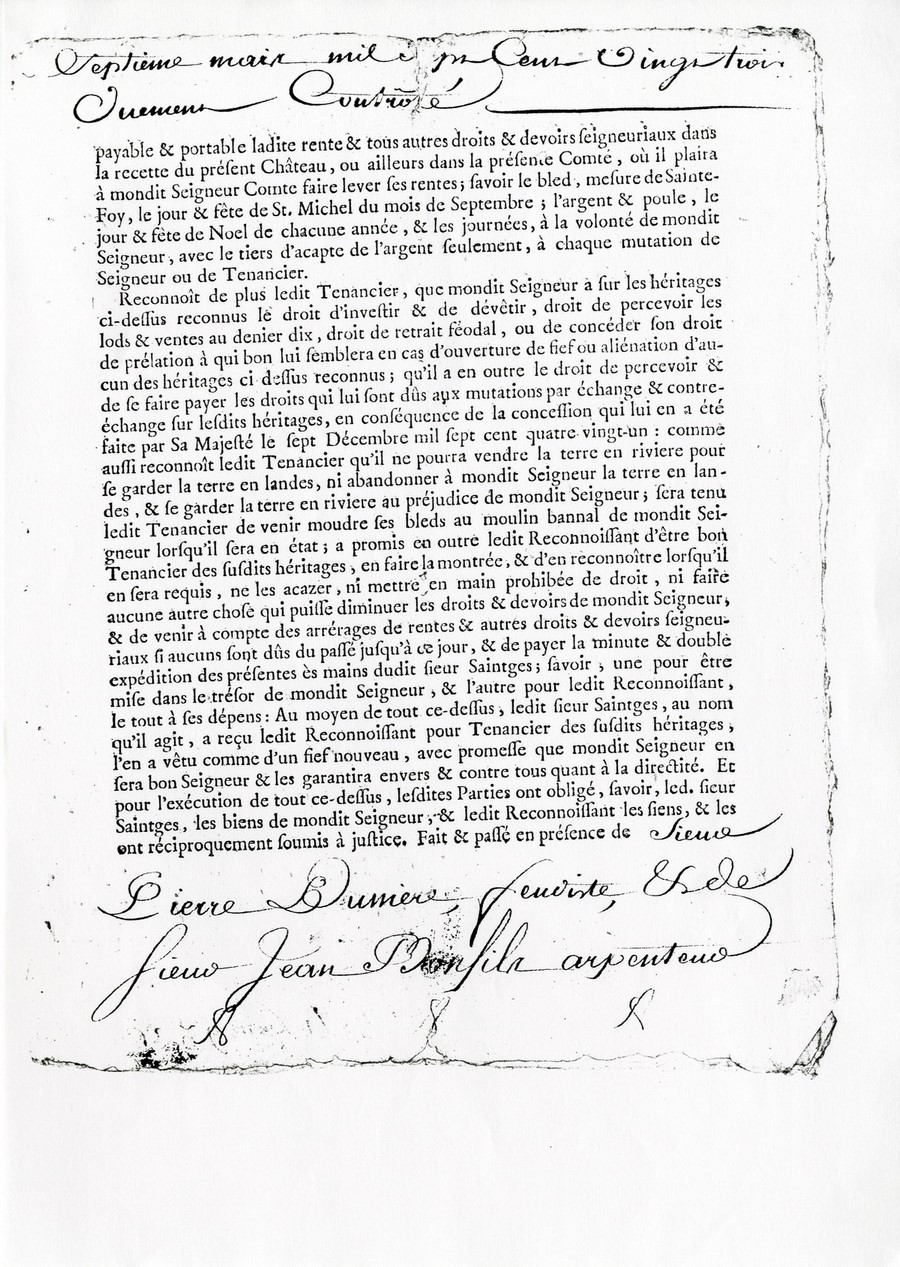 Septieme mars mil sept Cent Vingt trois
Duement Controllé
payable & portable ladite rente & tous autres droits & devoirs ſeigneuriaux dans
la recette du préſent Château, ou ailleurs dans la préſente Comté, où il plaira
à mondit Seigneur Comte faire lever ſes rentes; ſavoir le bled, meſure de Sainte-
Foy, le jour & fête de St. Michel du mois de Septembre; l'argent & poule, le
jour & fête de Noel de chacune année, & les journées, à la volonté de mondit
Seigneur, avec le tiers d'acapte de l'argent ſeulement, à chaque mutation de
Seigneur ou de Tenancier.
Reconnoît de plus ledit Tenancier, que mondit Seigneur à ſur les héritages
ci-deſſus reconnus le droit d'inveſtir & de dévêtir, droit de percevoir les
lods & ventes au denier dix, droit de retrait féodal, ou de concéder ſon droit
de prélation à qui bon lui ſemblera en cas d'ouverture de fief ou aliénation d'au-
cun des héritages ci-deſſus reconnus; qu'il a en outre le droit de percevoir &
de ſe faire payer les droits qui lui ſont dûs aux mutations par échange & contre-
échange ſur leſdits héritages, en conſéquence de la conceſſion qui lui en a été
faite par Sa Majeſté le ſept Décembre mil ſept cent quatre-vingt-un : comme
auſſi reconnoît ledit Tenancier qu'il ne pourra vendre la terre en riviere pour
ſe garder la terre en landes, ni abandonner à mondit Seigneur la terre en lan-
des, & ſe garder la terre en riviere au préjudice de mondit Seigneur; ſera tenu
ledit Tenancier de venir moudre ſes bleds au moulin bannal de mondit Sei-
gneur lorſqu'il ſera en état; a promis en outre ledit Reconnoiſſant d'être bon
Tenancier des ſuſdits héritages, en faire la montrée, & d'en reconnoître lorſqu'il
en ſera requis, ne les acazer, ni mettre en main prohibée de droit, ni faire
aucune autre choſe qui puiſſe diminuer les droits & devoirs de mondit Seigneur,
& de venir à compte des arrérages de rentes & autres droits & devoirs ſeigneu-
riaux ſi aucuns ſont dûs du paſſé juſqu'à ce jour, & de payer la minute & double
expédition des préſentes ès mains dudit ſieur Saintges; ſavoir, une pour être
miſe dans le tréſor de mondit Seigneur, & l'autre pour ledit Reconnoiſſant,
le tout à ſes dépens: Au moyen de tout ce-deſſus, ledit ſieur Saintges, au nom
qu'il agit, a reçu ledit Reconnoiſſant pour Tenancier des ſuſdits héritages,
l'en a vêtu comme d'un fief nouveau, avec promeſſe que mondit Seigneur en
ſera bon Seigneur & les garantira envers & contre tous quant à la directité. Et
pour l'exécution de tout ce-deſſus, leſdites Parties ont obligé, ſavoir, led. ſieur
Saintges, les biens de mondit Seigneur, & ledit Reconnoiſſant les ſiens, & les
ont réciproquement ſoumis à juſtice. Fait & paſſé en préſence de Sieur
Pierre Dumère, feudiste, & de
Sieur Jean Bonfils arpenteur